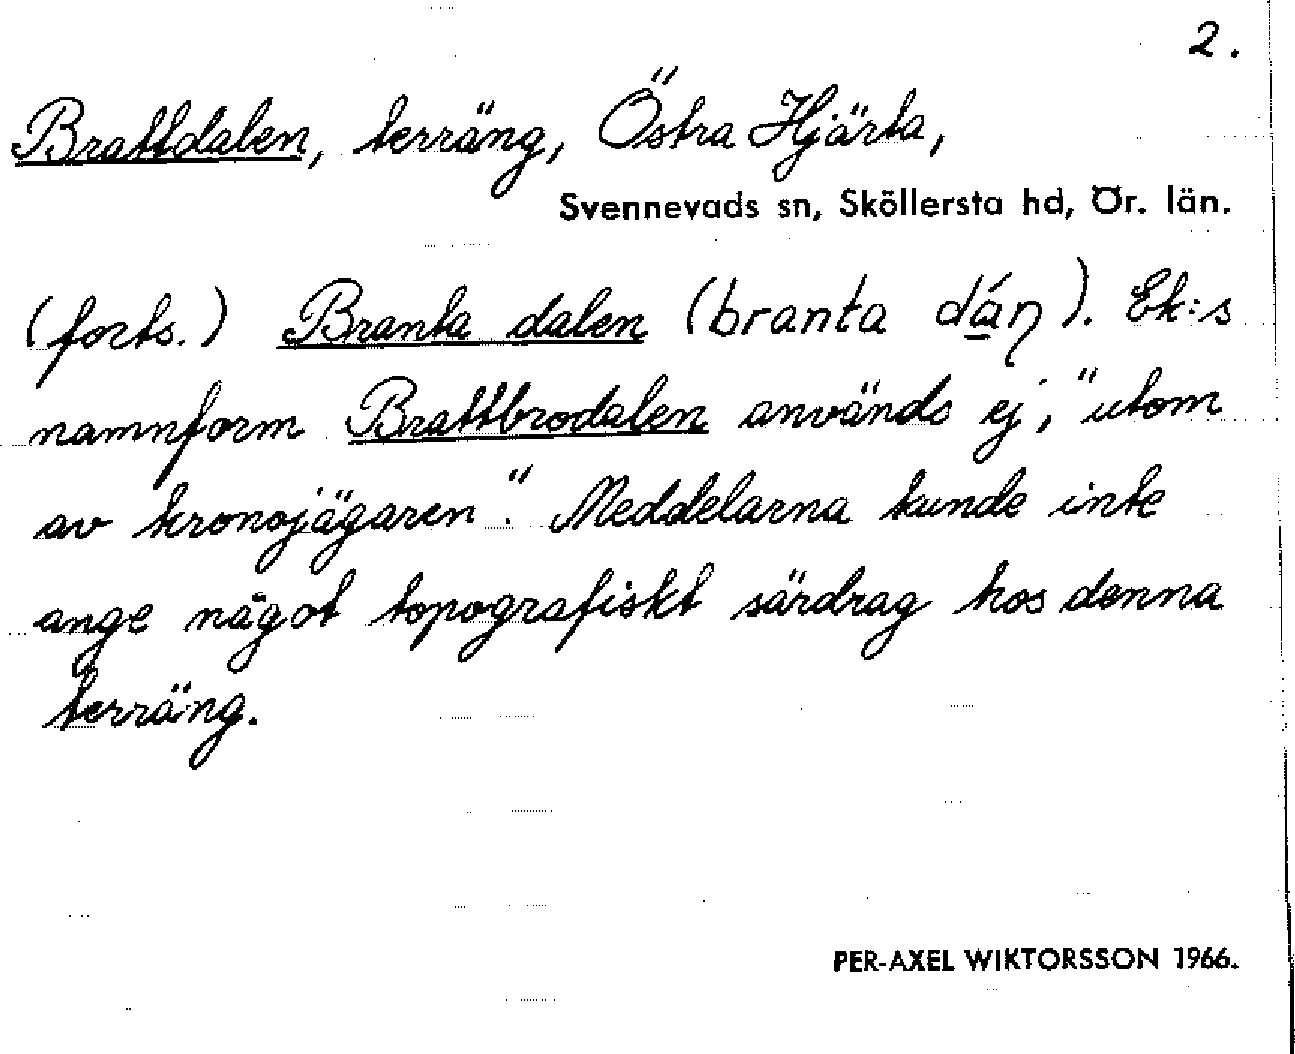 2.
Brattdalen, terräng, Östra Hjärta,
Svennevads sn, Sköllersta hd, Ör. län.
(forts.) Branta dalen (branta dá̱ŋ). Ek:s
namnform Brattbrodalen används ej, "utom
av kronojägaren". Meddelarna kunde inte
ange något topografiskt särdrag hos denna
terräng.
PER-AXEL WIKTORSSON 1966.